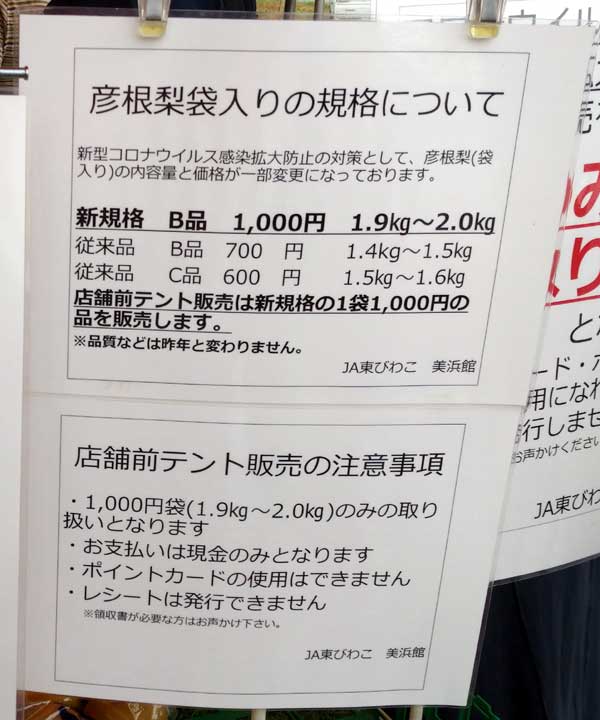 彦根梨袋入りの規格について
新型コロナウイルス感染拡大防止の対策として、彦根梨(袋
入り)の内容量と価格が一部変更になっております。
新規格 B品 1,000円 1.9kg～2.0kg
従来品 B品 700 円 1.4kg～1.5kg
従来品 C品 600 円 1.5kg～1.6kg
店舗前テント販売は新規格の1袋1,000円の
品を販売します。
※品質などは昨年と変わりません。
JA東びわこ 美浜館
店舗前テント販売の注意事項
・1,000円袋(1.9kg～2.0kg)のみの取り
扱いとなります
・お支払いは現金のみとなります
・ポイントカードの使用はできません
・レシートは発行できません
※領収書が必要な方はお声かけ下さい。
JA東びわこ 美浜館
ウイル
とな
ード・ポ
用になれ
行しませ
お声かけください
JA東びわこ